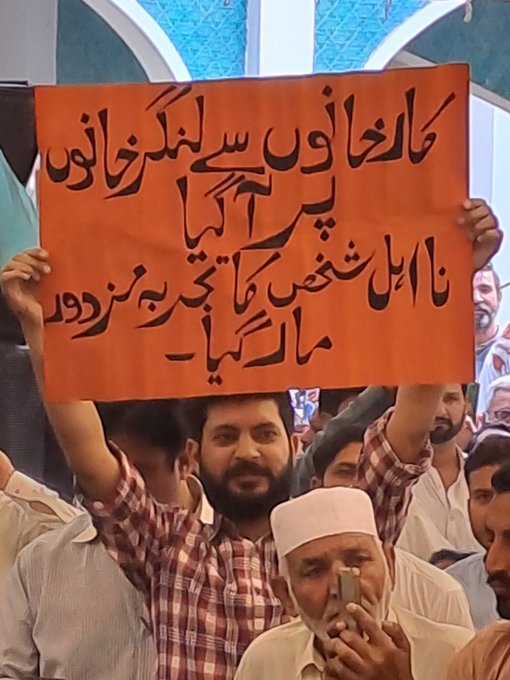 کارخانوں سے لنگر خانوں
پر آ گیا
نا اہل شخص کا تجربہ مزدور
مار گیا۔